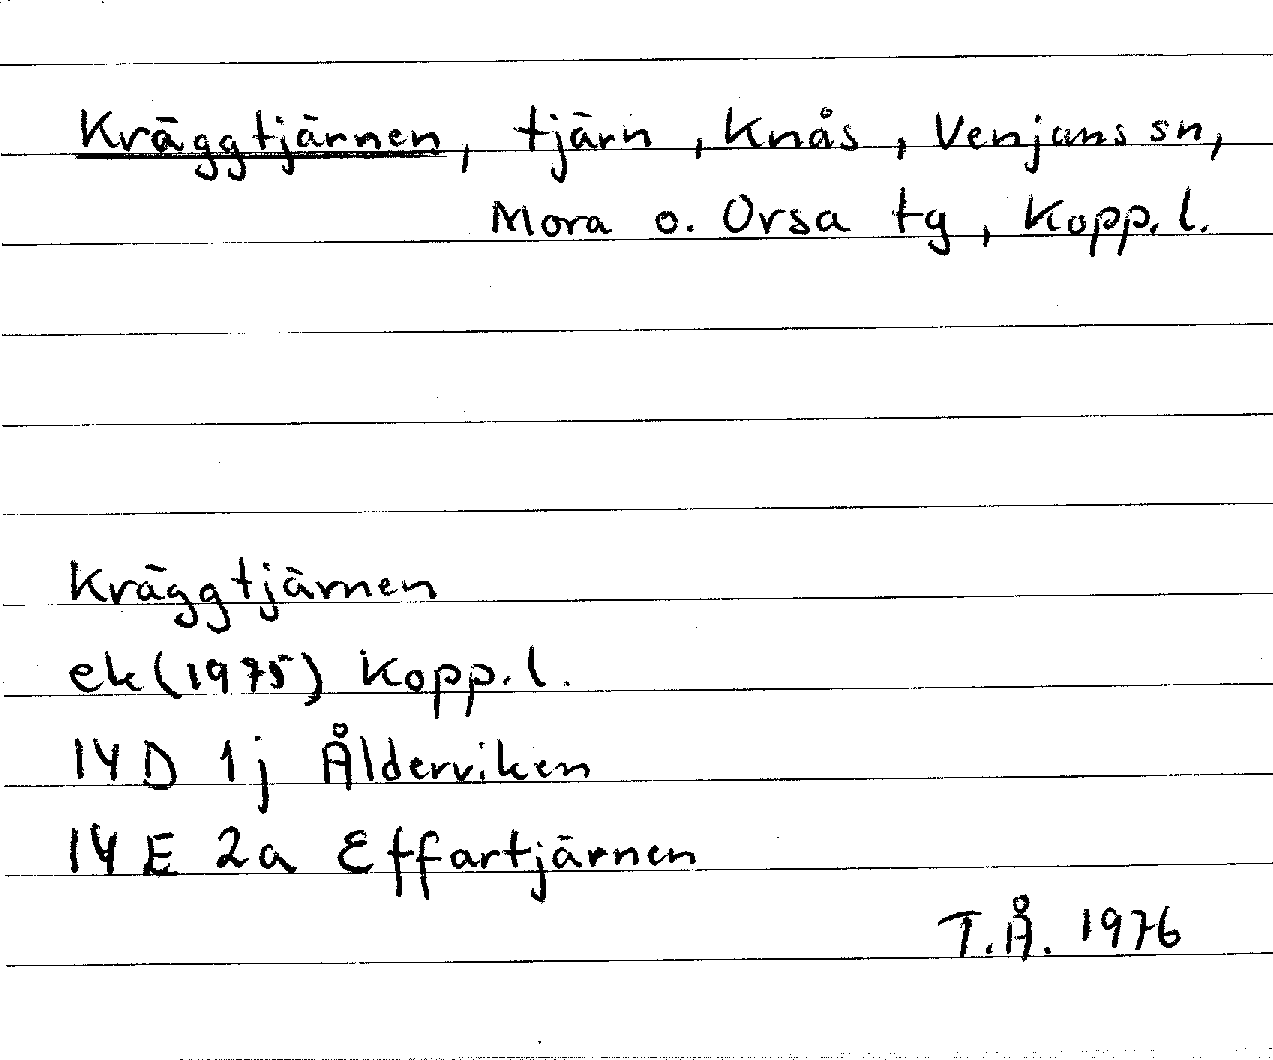 Kräggtjärnen, tjärn, Knås, Venjans sn,
Mora o. Orsa tg, Kopp. l.
Kräggtjärnen
ek (1975) Kopp. l.
14 D 1j Ålderviken
14 E 2a Effartjärnen
T.Å. 1976